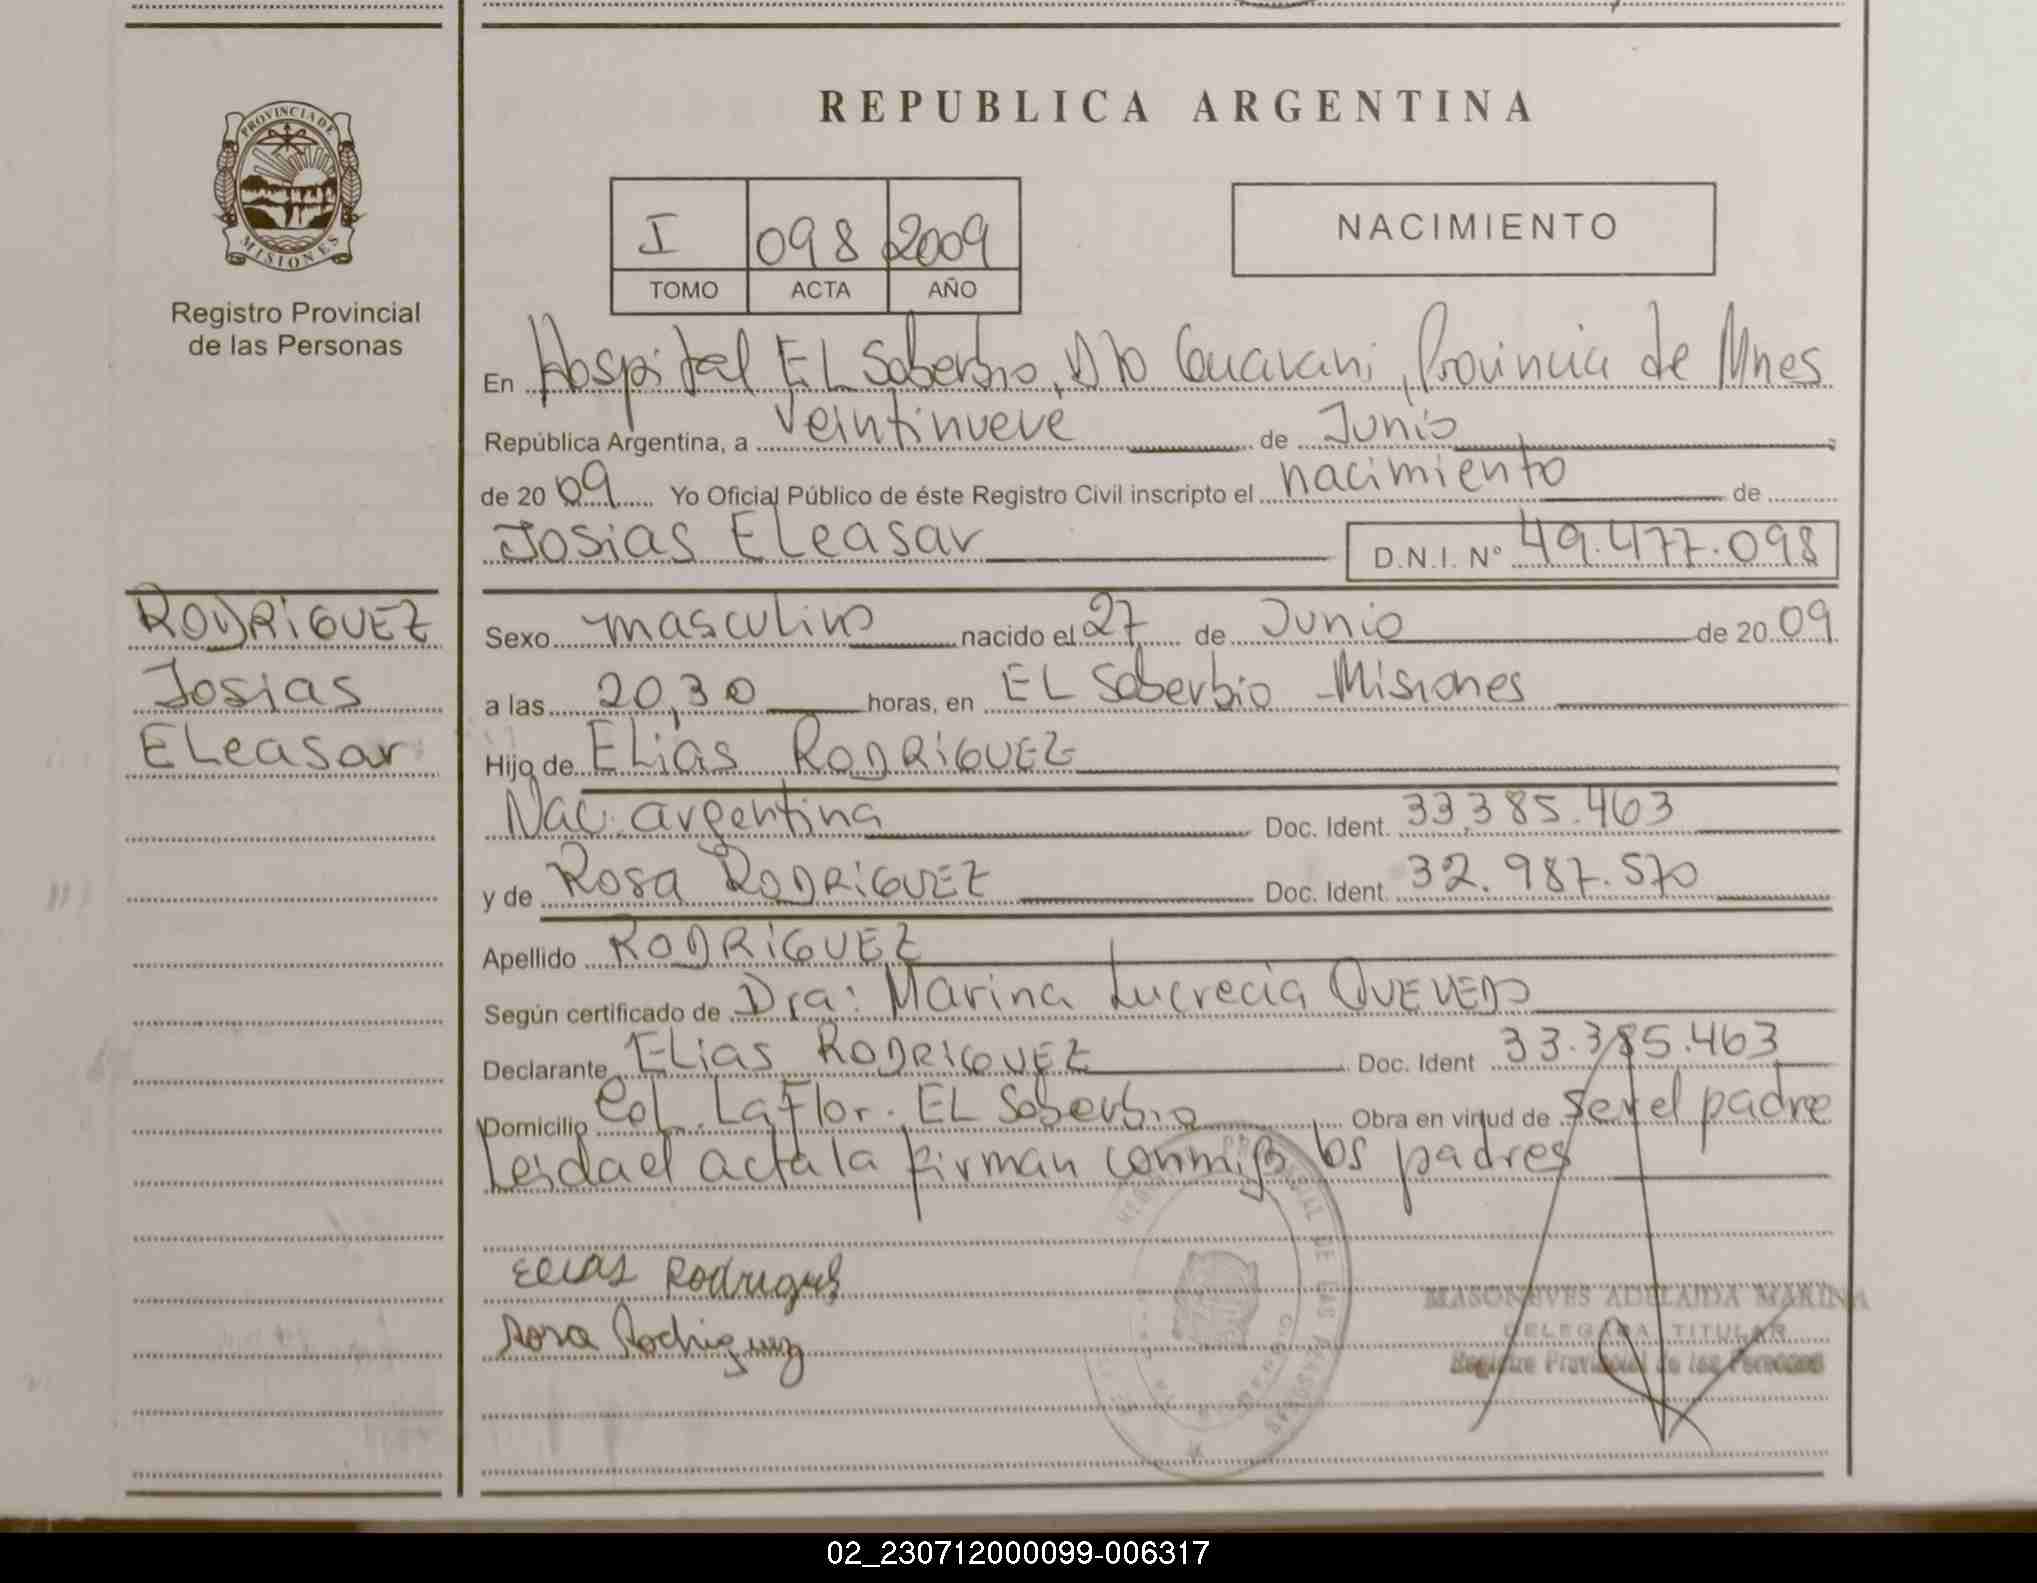 REPUBLICA ARGENTINA
PROVINCIA DE
MISIONES
Registro Provincial
de las Personas
I 098 2009
TOMO ACTA AÑO
NACIMIENTO
En Hospital EL Soberbio, Dto Guarani, Provincia de Mnes
República Argentina, a veintinueve de Junio
de 20 09 Yo Oficial Público de éste Registro Civil inscripto el nacimiento de
Josias ELeasar D.N.I. Nº 49.477.098
RODRIGUEZ
Josias
ELeasar
Sexo masculino nacido el 27 de Junio de 20 09
a las 20,30 horas, en EL Soberbio - Misiones
Hijo de ELias RODRIGUEZ
Nac. argentina Doc. Ident. 33.385.463
y de Rosa RODRIGUEZ Doc. Ident. 32.987.570
Apellido RODRIGUEZ
Según certificado de Dra: Marina Lucrecia QUEVEDO
Declarante ELias RODRIGUEZ Doc. Ident 33.385.463
Domicilio Col. La Flor. EL Soberbio Obra en virtud de ser el padre
Leida el acta la firman conmigo los padres
Elias Rodrigues
Rosa Rodriguez
MASONEVES ADELAIDA MARINA
DELEGADA TITULAR
Registro Provincial de las Personas
02_230712000099-006317